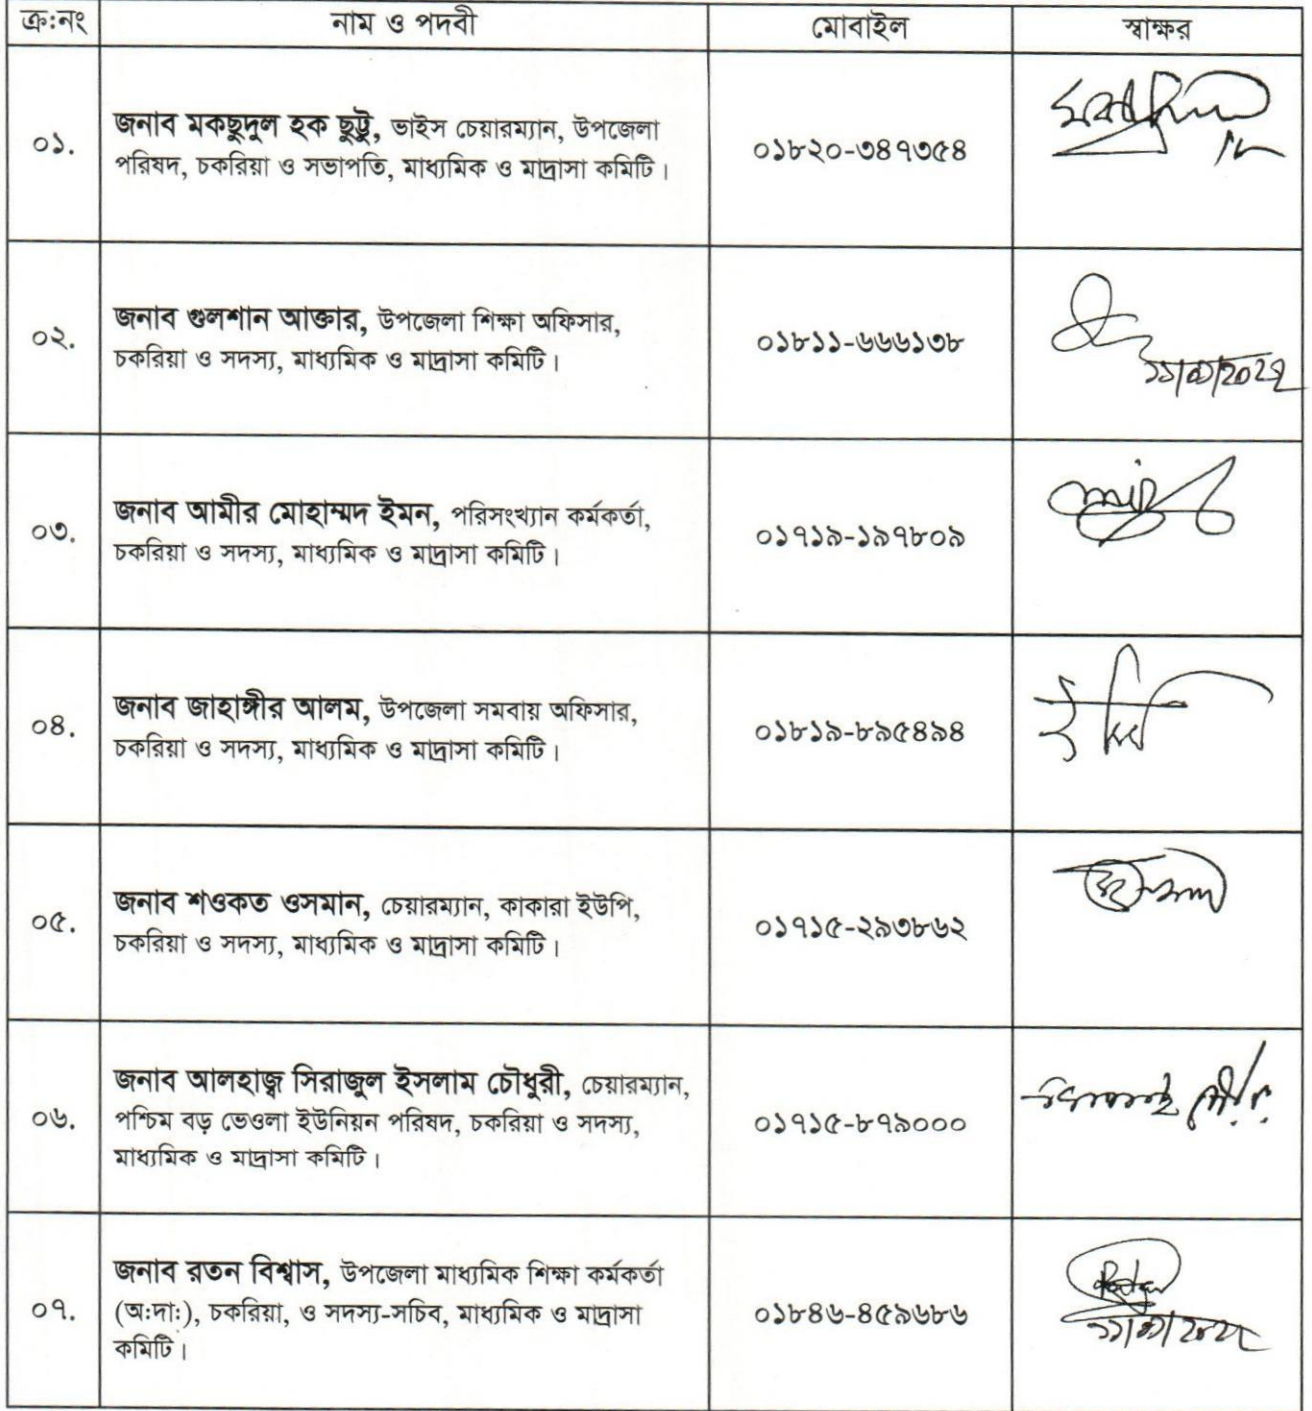 ক্র:নং নাম ও পদবী মোবাইল স্বাক্ষর
০১. জনাব মকছুদুল হক ছুট্টু, ভাইস চেয়ারম্যান, উপজেলা
পরিষদ, চকরিয়া ও সভাপতি, মাধ্যমিক ও মাদ্রাসা কমিটি।
০১৮২০-৩৪৭৩৫৪
০২. জনাব গুলশান আক্তার, উপজেলা শিক্ষা অফিসার,
চকরিয়া ও সদস্য, মাধ্যমিক ও মাদ্রাসা কমিটি।
০১৮১১-৬৬৬১৩৮
০৩. জনাব আমীর মোহাম্মদ ইমন, পরিসংখ্যান কর্মকর্তা,
চকরিয়া ও সদস্য, মাধ্যমিক ও মাদ্রাসা কমিটি।
০১৭১৯-১৯৭৮০৯
০৪. জনাব জাহাঙ্গীর আলম, উপজেলা সমবায় অফিসার,
চকরিয়া ও সদস্য, মাধ্যমিক ও মাদ্রাসা কমিটি।
০১৮১৯-৮৯৫৪৯৪
০৫. জনাব শওকত ওসমান, চেয়ারম্যান, কাকারা ইউপি,
চকরিয়া ও সদস্য, মাধ্যমিক ও মাদ্রাসা কমিটি।
০১৭১৫-২৯৩৮৬২
০৬. জনাব আলহাজ্ব সিরাজুল ইসলাম চৌধুরী, চেয়ারম্যান,
পশ্চিম বড় ভেওলা ইউনিয়ন পরিষদ, চকরিয়া ও সদস্য,
মাধ্যমিক ও মাদ্রাসা কমিটি।
০১৭১৫-৮৭৯০০০
০৭. জনাব রতন বিশ্বাস, উপজেলা মাধ্যমিক শিক্ষা কর্মকর্তা
(অ:দা:), চকরিয়া, ও সদস্য-সচিব, মাধ্যমিক ও মাদ্রাসা
কমিটি।
০১৮৪৬-৪৫৯৬৮৬